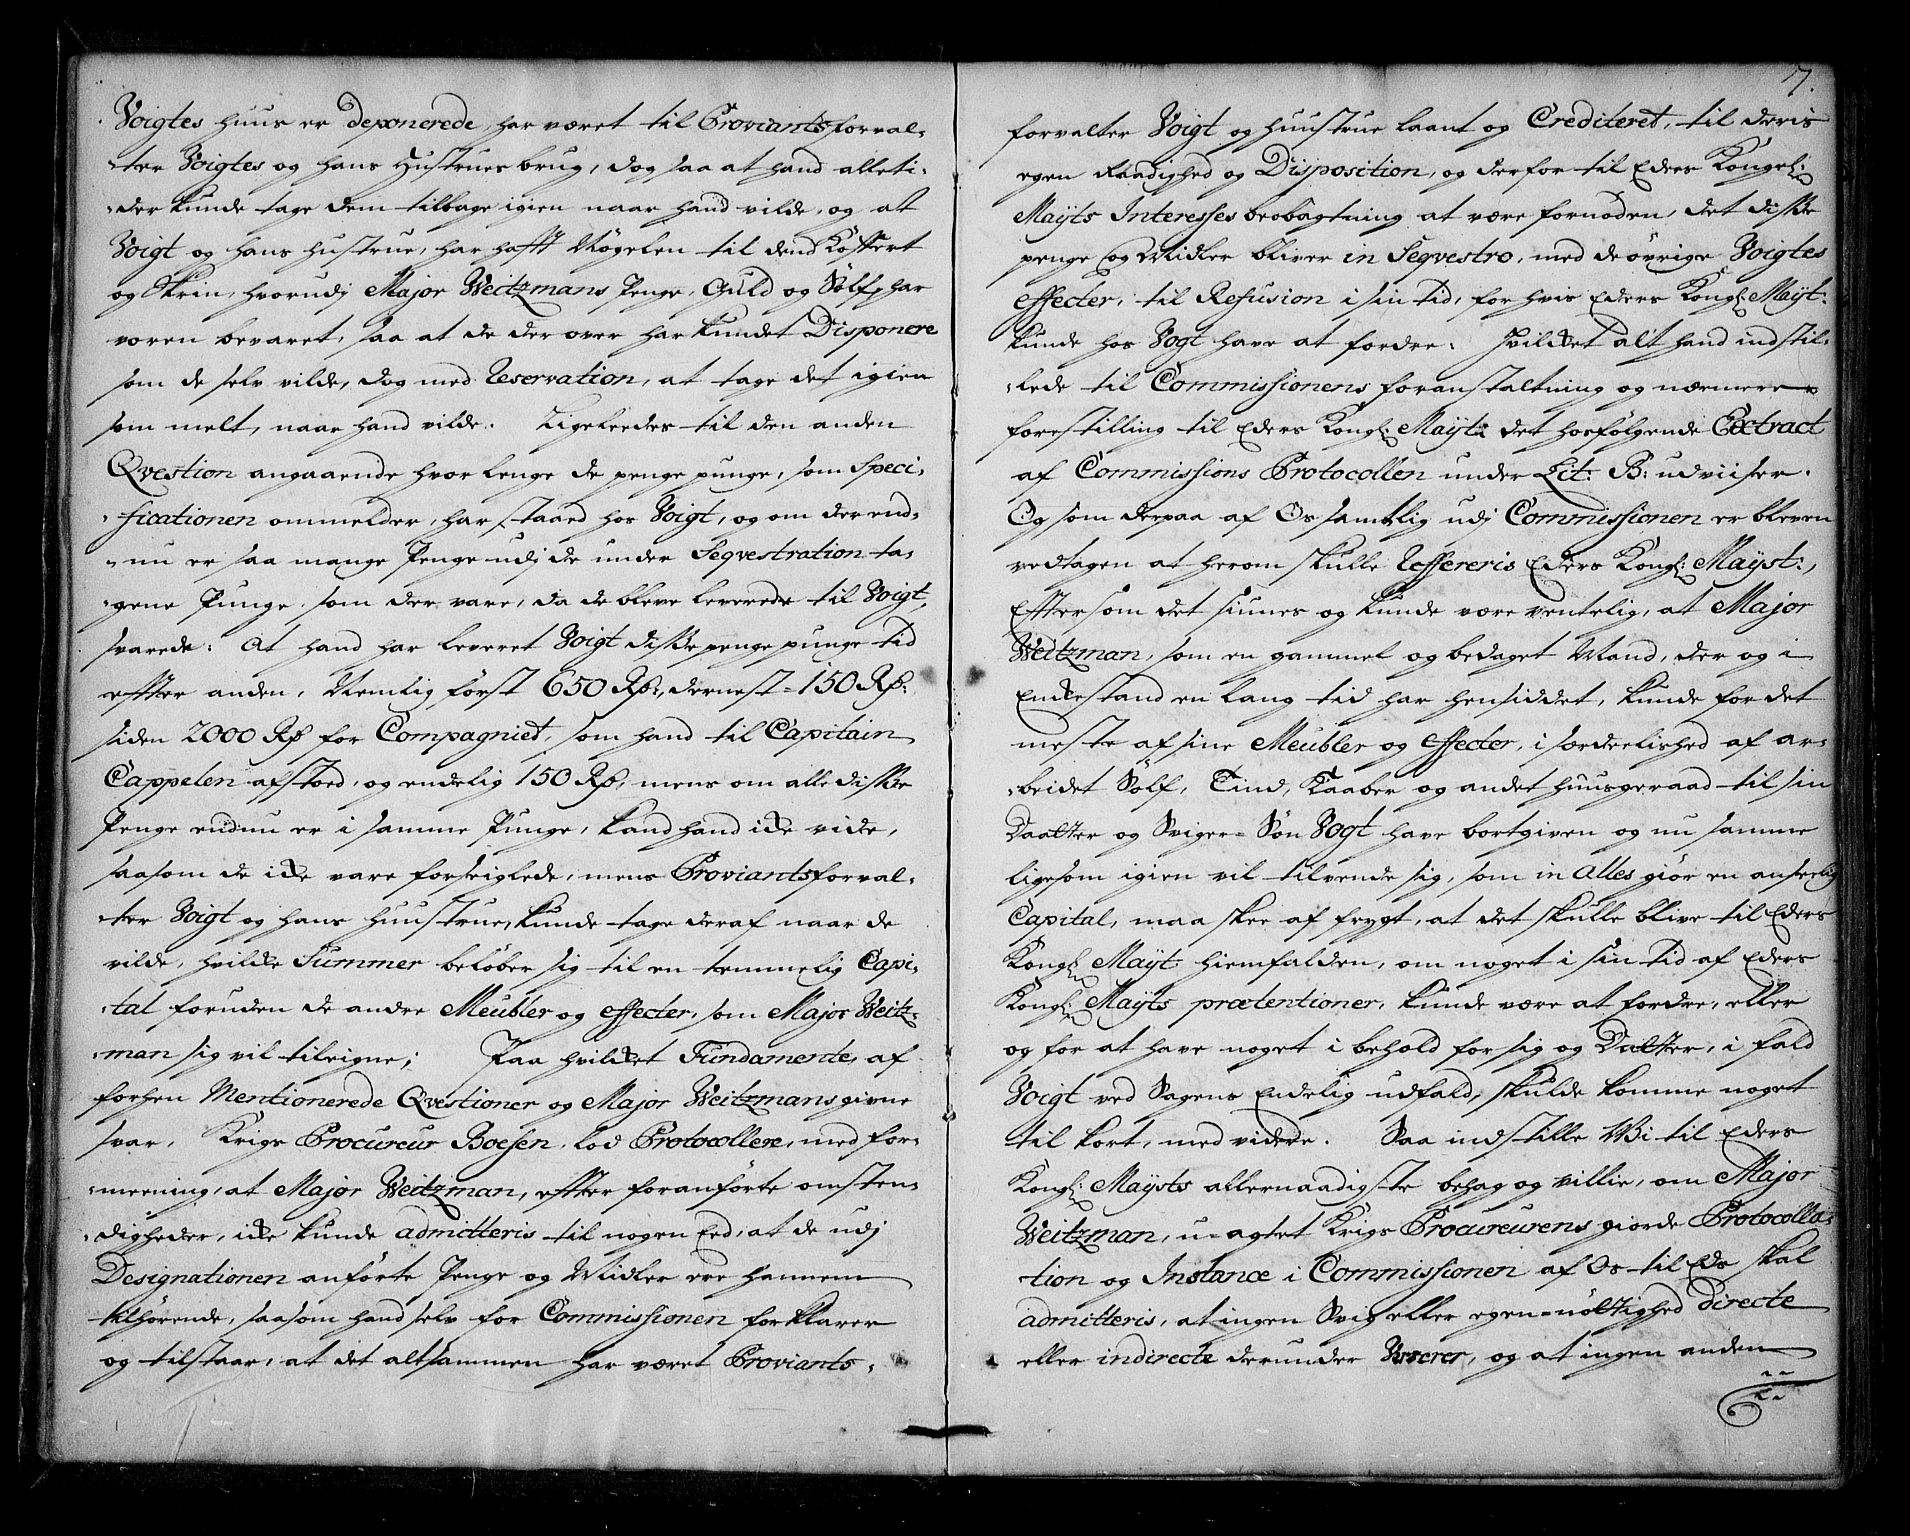 Voigtes huus er deponerede, har været til Proviantsforval-
-ter Voigtes og hans Hustrues brug, dog saa at hand alleti-
-der kunde tage dem tilbage igien naar hand vilde, og at
Voigt og hans hustrue, har hafft Nøgelen til dend Koffert
og Skrin, hvorudj Major Weitzmans Penge, Guld og Sølf, har
voren bevaret, saa at de der over har kundet Disponere
som de selv vilde, dog med Reservation, at tage det igien
som melt, naar hand vilde. Ligeleedes til den anden
Qvestion angaaende hvor lenge de penge punge, som Speci-
-ficationen ommelder, har staaed hos Voigt, og om der end-
-nu er saa mange Penge udj de under Seqvestration ta-
-gene Punge, som der vare, da de bleve leverede til Voigt,
svarede: At hand har leveret Voigt diske penge punge tid
effter anden, Nemlig først 650 Rd:, dernest 150 Rd:
siden 2000 Rd for Compagniet, som hand til Capitain
Cappelen afstoed, og endelig 150 Rd, mens om alle diske
Penge endnu er i samme Punge, kand hand icke vide,
saasom de icke vare forseiglede, mens Proviantsforval-
-ter Voigt og hans huustrue, kunde tage deraf naar de
vilde, hvilke Summer beløber sig til en temmelig Capi-
-tal foruden de andre Meubler og effecter, som Major Weitz-
-man sig vil tileigne; Paa hvilket Fundamente, af
forhen Mentionerede Qvestioner og Major Weitzmans givne
svar, Krigs Procureur Boesen, lod Protocollere, med for-
-meening, at Major Weitzman, effter foranførte omsten-
-digheder, icke kunde admitteris til nogen Eed, at de udj
Designationen anførte Penge og Midler ere hannem
tilhørende, saasom hand selv for Commissionen forklarer
og tilstaar, at det altsammen har været Proviants-
7.
forvalter Voigt og huustrue laant og Crediteret, til deris
egen Raadighed og Disposition, og derfor til Eders Kongel:
Mayts Interesses beobagtning at være fornøden, det diske
penge og Midler bliver in Seqvestro, med de øvrige Voigtes
effecter, til Refusion i sin tid, for hvis Eders Kongl: Mayt:
kunde hos Vogt have at fordre. Hvilket alt hand indstil-
-lede til Commissionens foranstaltning og nærmere
forestilling til Eders Kongl: Mayt: det hosfølgende Extract
af Commissions Protocollen under Lit: B: udviser.
Og som derpaa af Os samtlig udj Commissionen er bleven
vedtagen at herom skulle Reffereris Eders Kongl: Mayst:,
Efftersom det siunes og kunde være ventelig, at Major
Weitzman, som en gammel og bedaget Mand, der og i
Enkestand en lang tid har hensiddet, kunde for det
meste af sine Meubler og effecter, i særdeelished af ar-
-beidet Sølf, Tind, Kaaber og andet huusgeraad til sin
Daatter og Sviger-Søn Vogt have bortgiven og nu samme
ligesom igien vil tilvende sig, som in Alles giør en anseelig
Capital, maa skee af frygt, at det skulle blive til Eders
Kongl: Mayt: hiemfalden, om noget i sin tid af Eders
Kongl: Mayts prætentioner, kunde være at fordre, eller
og for at have noget i behold for sig og Datter, i fald
Voigt ved Sagens Endelig udfald, skulde komme noget
til kort, med videre. Saa indstille Wi til Eders
Kongl: Maysts allernaadigste behag og villie, om Major
Weitzman, u-agtet Krigs Procureurens giorde Protocolla-
-tion og Instance i Commissionen af Os til Eds skal
admitteris, at ingen Svig eller egen-nøttighed directe
eller indirecte derunder Verserer, og at ingen anden